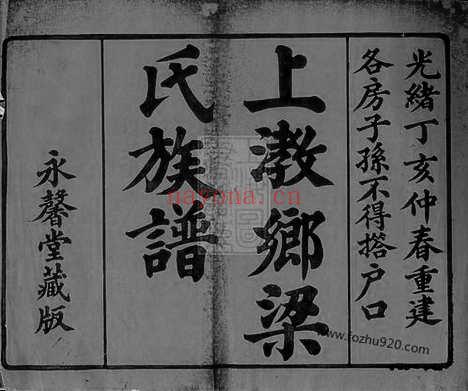 光緒丁亥仲春重建
各房子孫不得捨户口
上漖鄉梁
氏族譜
永馨堂藏版
nayona.cn
www.fozhu920.com